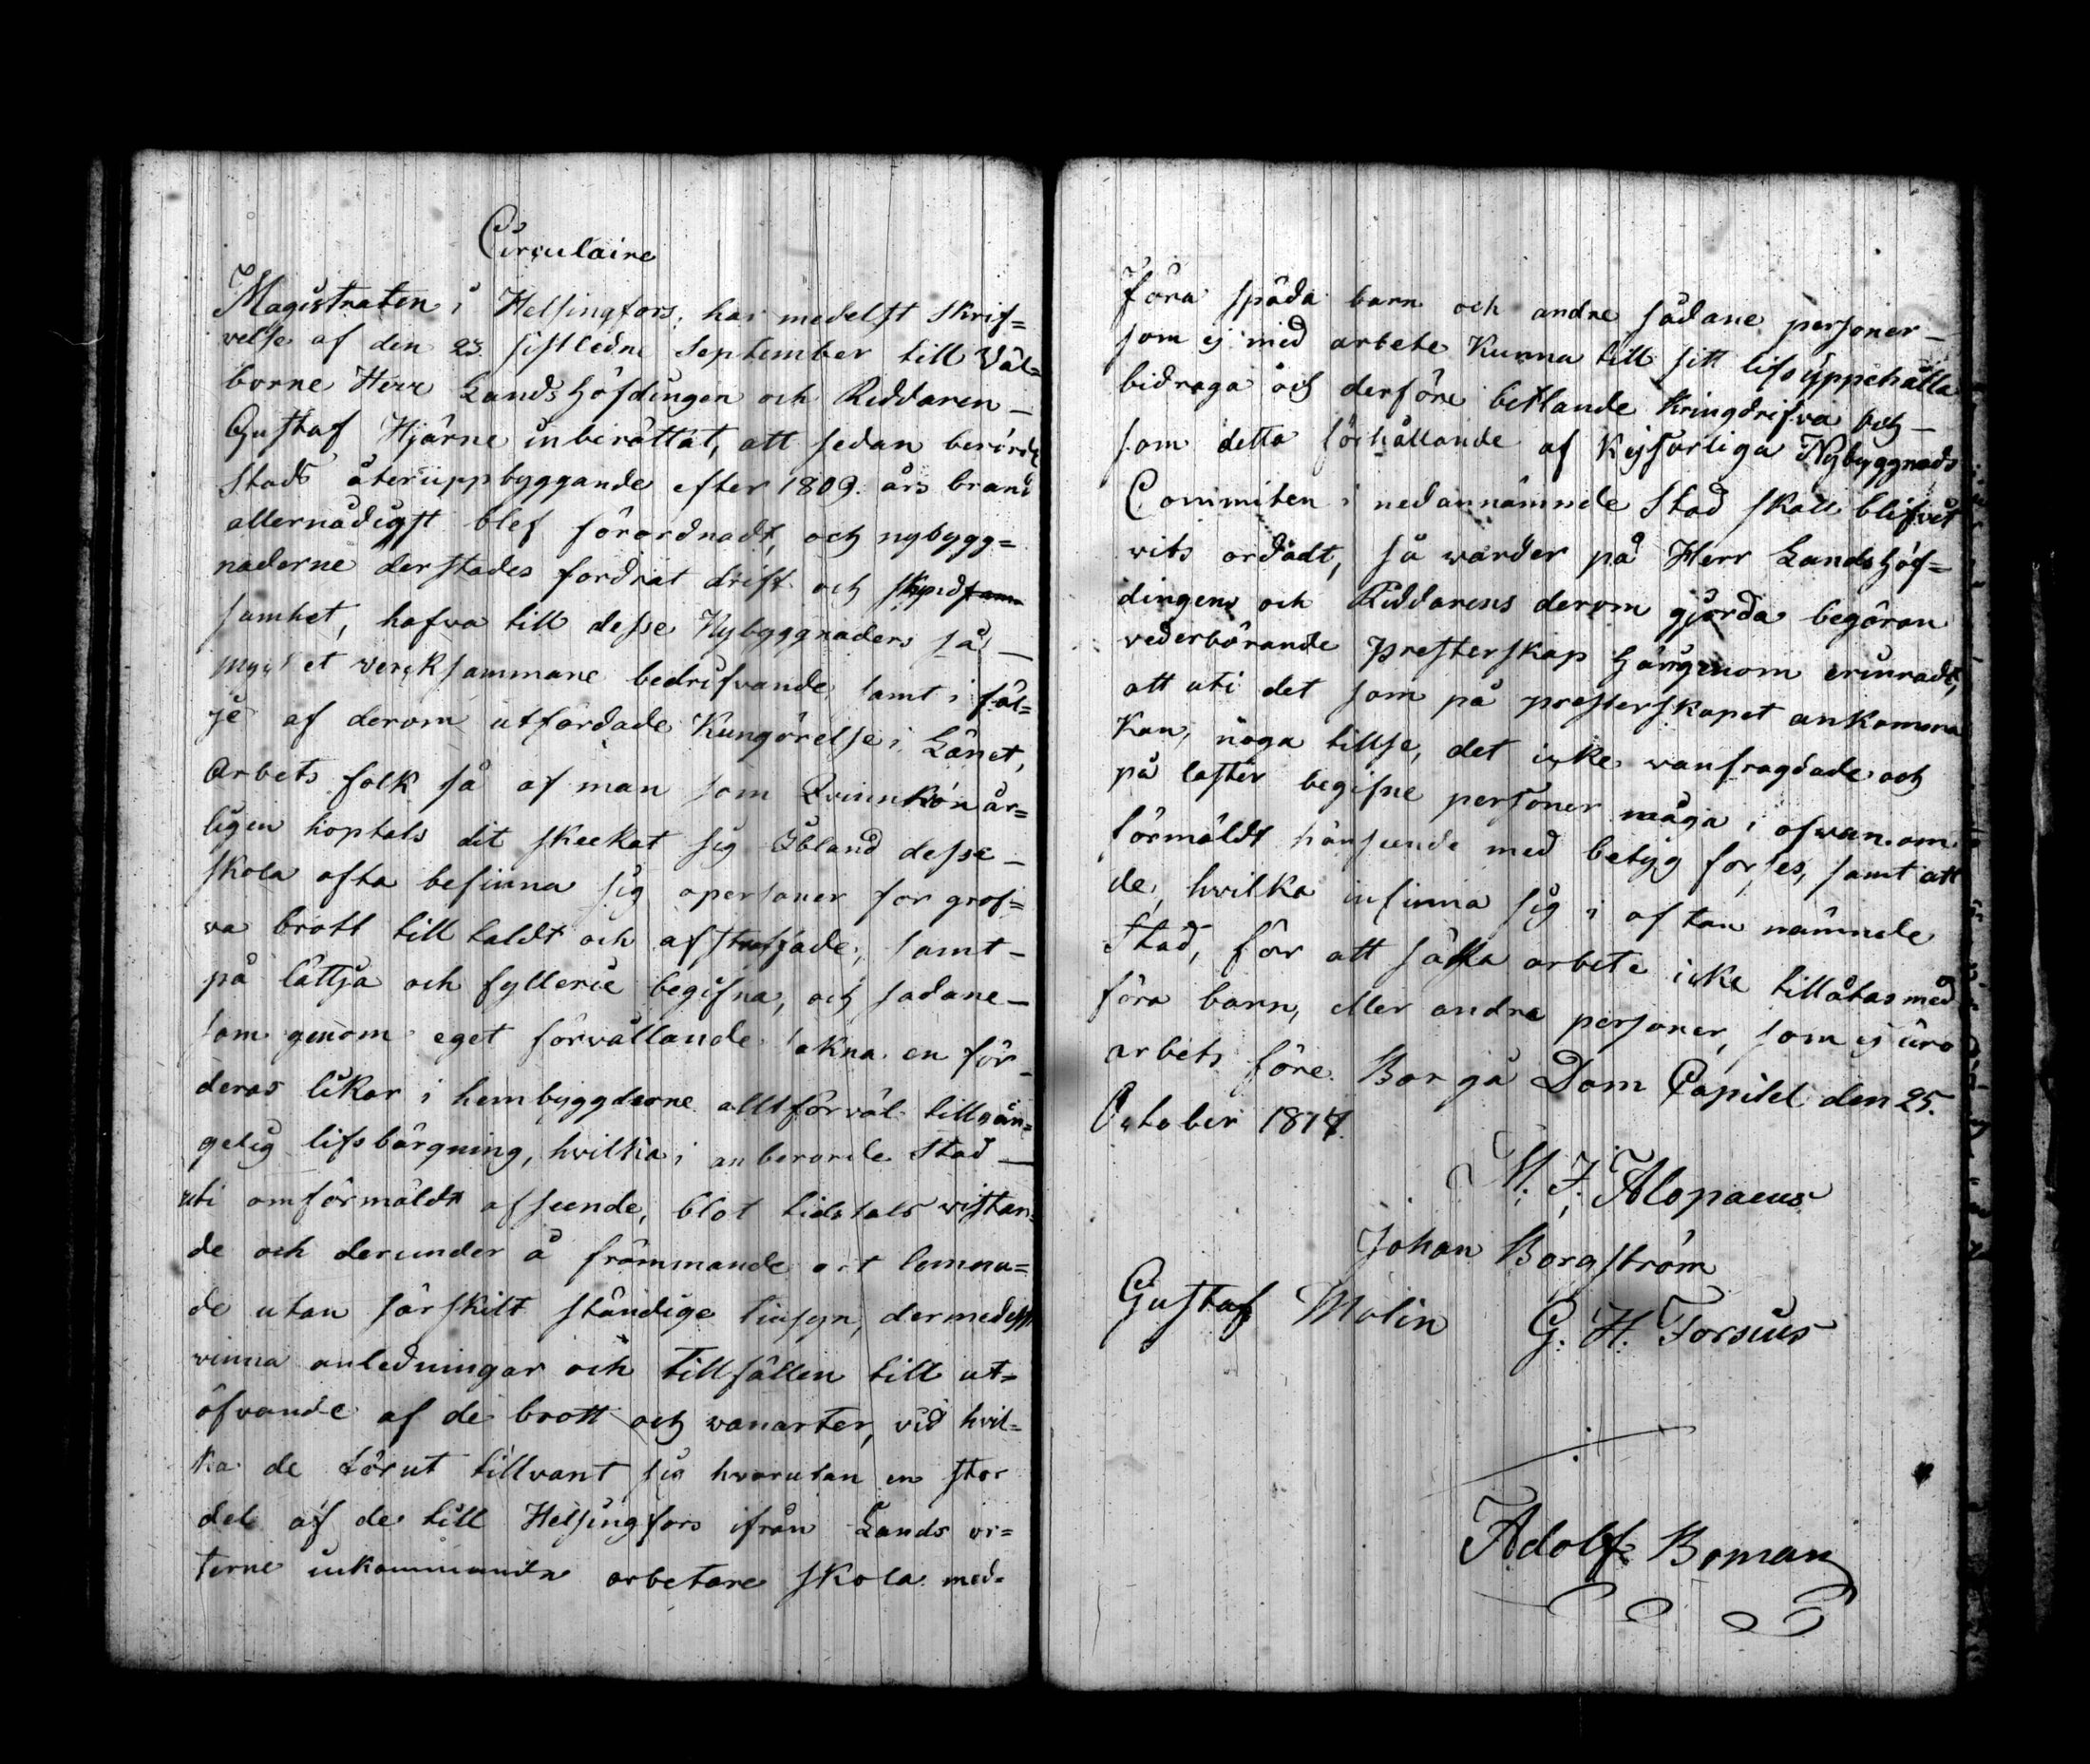 Circulaire
Magistraten i Helsingfors, har medelst Skrif=
velse af den 23. sistledne September till Väl=
borne Herr Landshöfdingen och Riddaren –
Gustaf Hjärne inberättat, att sedan berörde
Stads återuppbyggande efter 1809. års brand
allernådigst blef förordnadt, och nybygg=
naderne derstädes fordrat drift och
samhet, hafva till desse Nybyggnaders så –
mycket verksammare bedrifvande, samt i föl=
je af derom utfärdade Kungörelse i Länet,
Arbets folk så af man som Qvinnkön år=
ligen hoptals dit skickat sig Ibland desse –
skola ofta befinna sig personer for grof=
va brott till taldt och afstraffade, samt –
på lättja och fyllerie begifna, och sadane –
som genom eget förvållande sakna en för
deras likar i hembyggderne alltförväl tillgän=
gelig lifsbärgning, hvilka i anberörde Stad –
uti omförmäldt afseende, blot tidstals vistan=
de och derunder å främmande ort lemna=
de utan särskilt ständige tinsyn, dermedelst
vinna anledningar och Tillfällen till ut=
öfvande af de brott och vanarter, vid hvil=
ka de förut tillvant sig hvarutan en stor
del af de till Helsingfors ifrån Lands or=
terne inkommande arbetare skola med=
föra späda barn och andre sådane personer –
som ej med arbete Kunna till sitt lifsuppehälle
bidraga och derföre betlande Kringdrifva och –
som detta förhållande af Kejserliga Nybyggnads
Commiten i nedannämnde Stad skall blifvit
vits ordadt, så warder på Herr Landshöf=
dingens och Riddarens derom gjorda begäran
vederbörande Presterskap härigenom erinradt,
att uti det som på presterskapet ankomma
Kan, noga tillse, det icke vanfragdade och
på laster begifne personer måga i ofvan om
förmäldt hänseende med betyg förses, samt att
de, hvilka infinna sig i of tan nämnde
Stad, för att söka arbete icke tillåtas med
föra barn, eller andra personer, som ej äro
arbets före. Borgå Dom Capitel den 25.
October 1817.
M. J. Alopaeus
Johan Borgström
Gustaf Molin G. H. Forsius
Adolf Boman